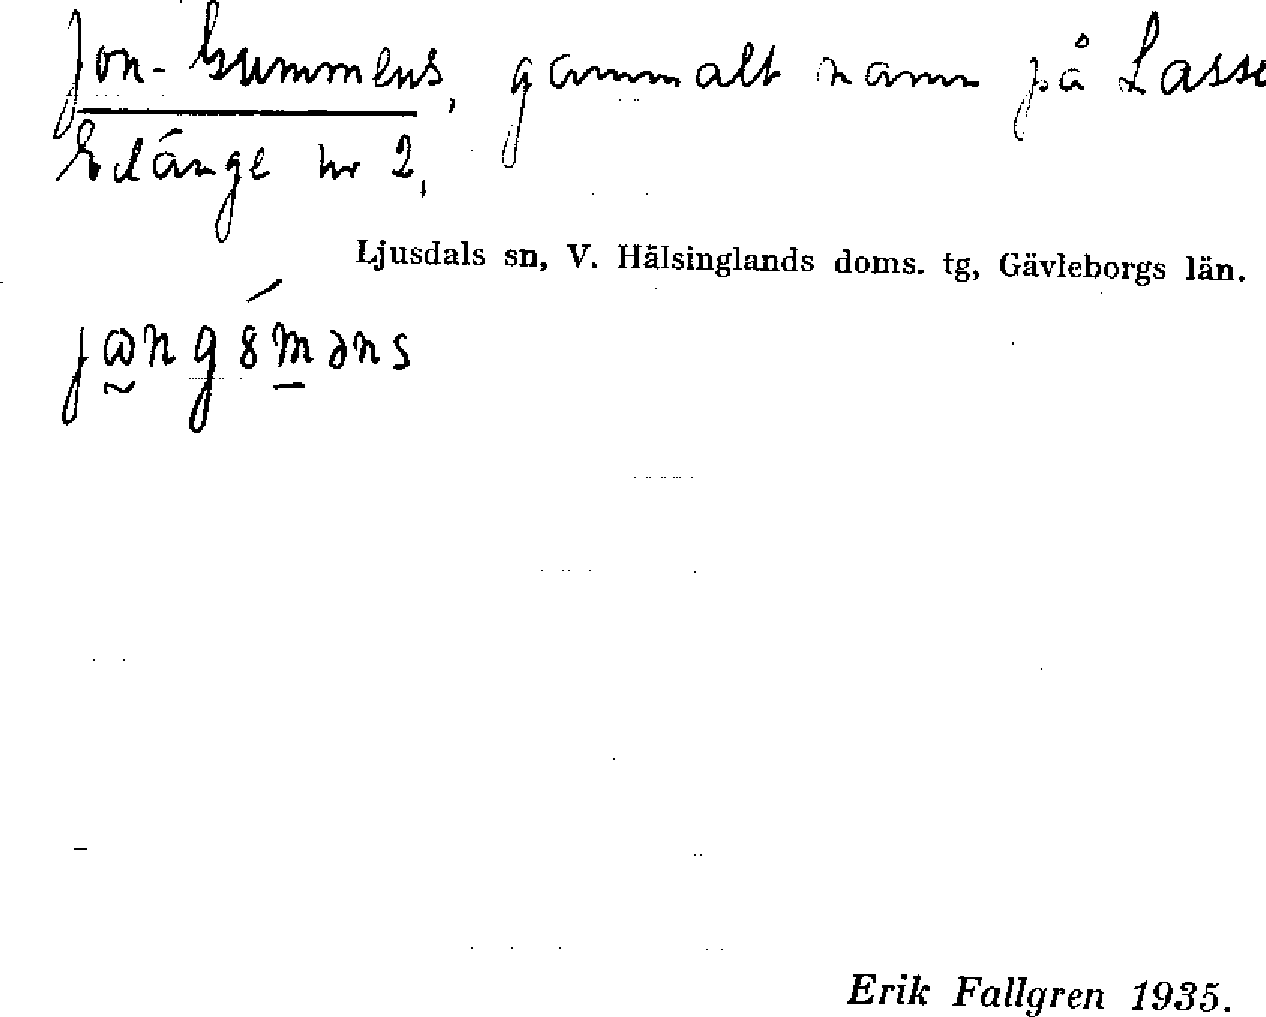 Jon-Gummens, gammalt namn på Lasse
Edänge nr 2,
Ljusdals sn, V. Hälsinglands doms. tg, Gävleborgs län.
Erik Fallgren 1935.